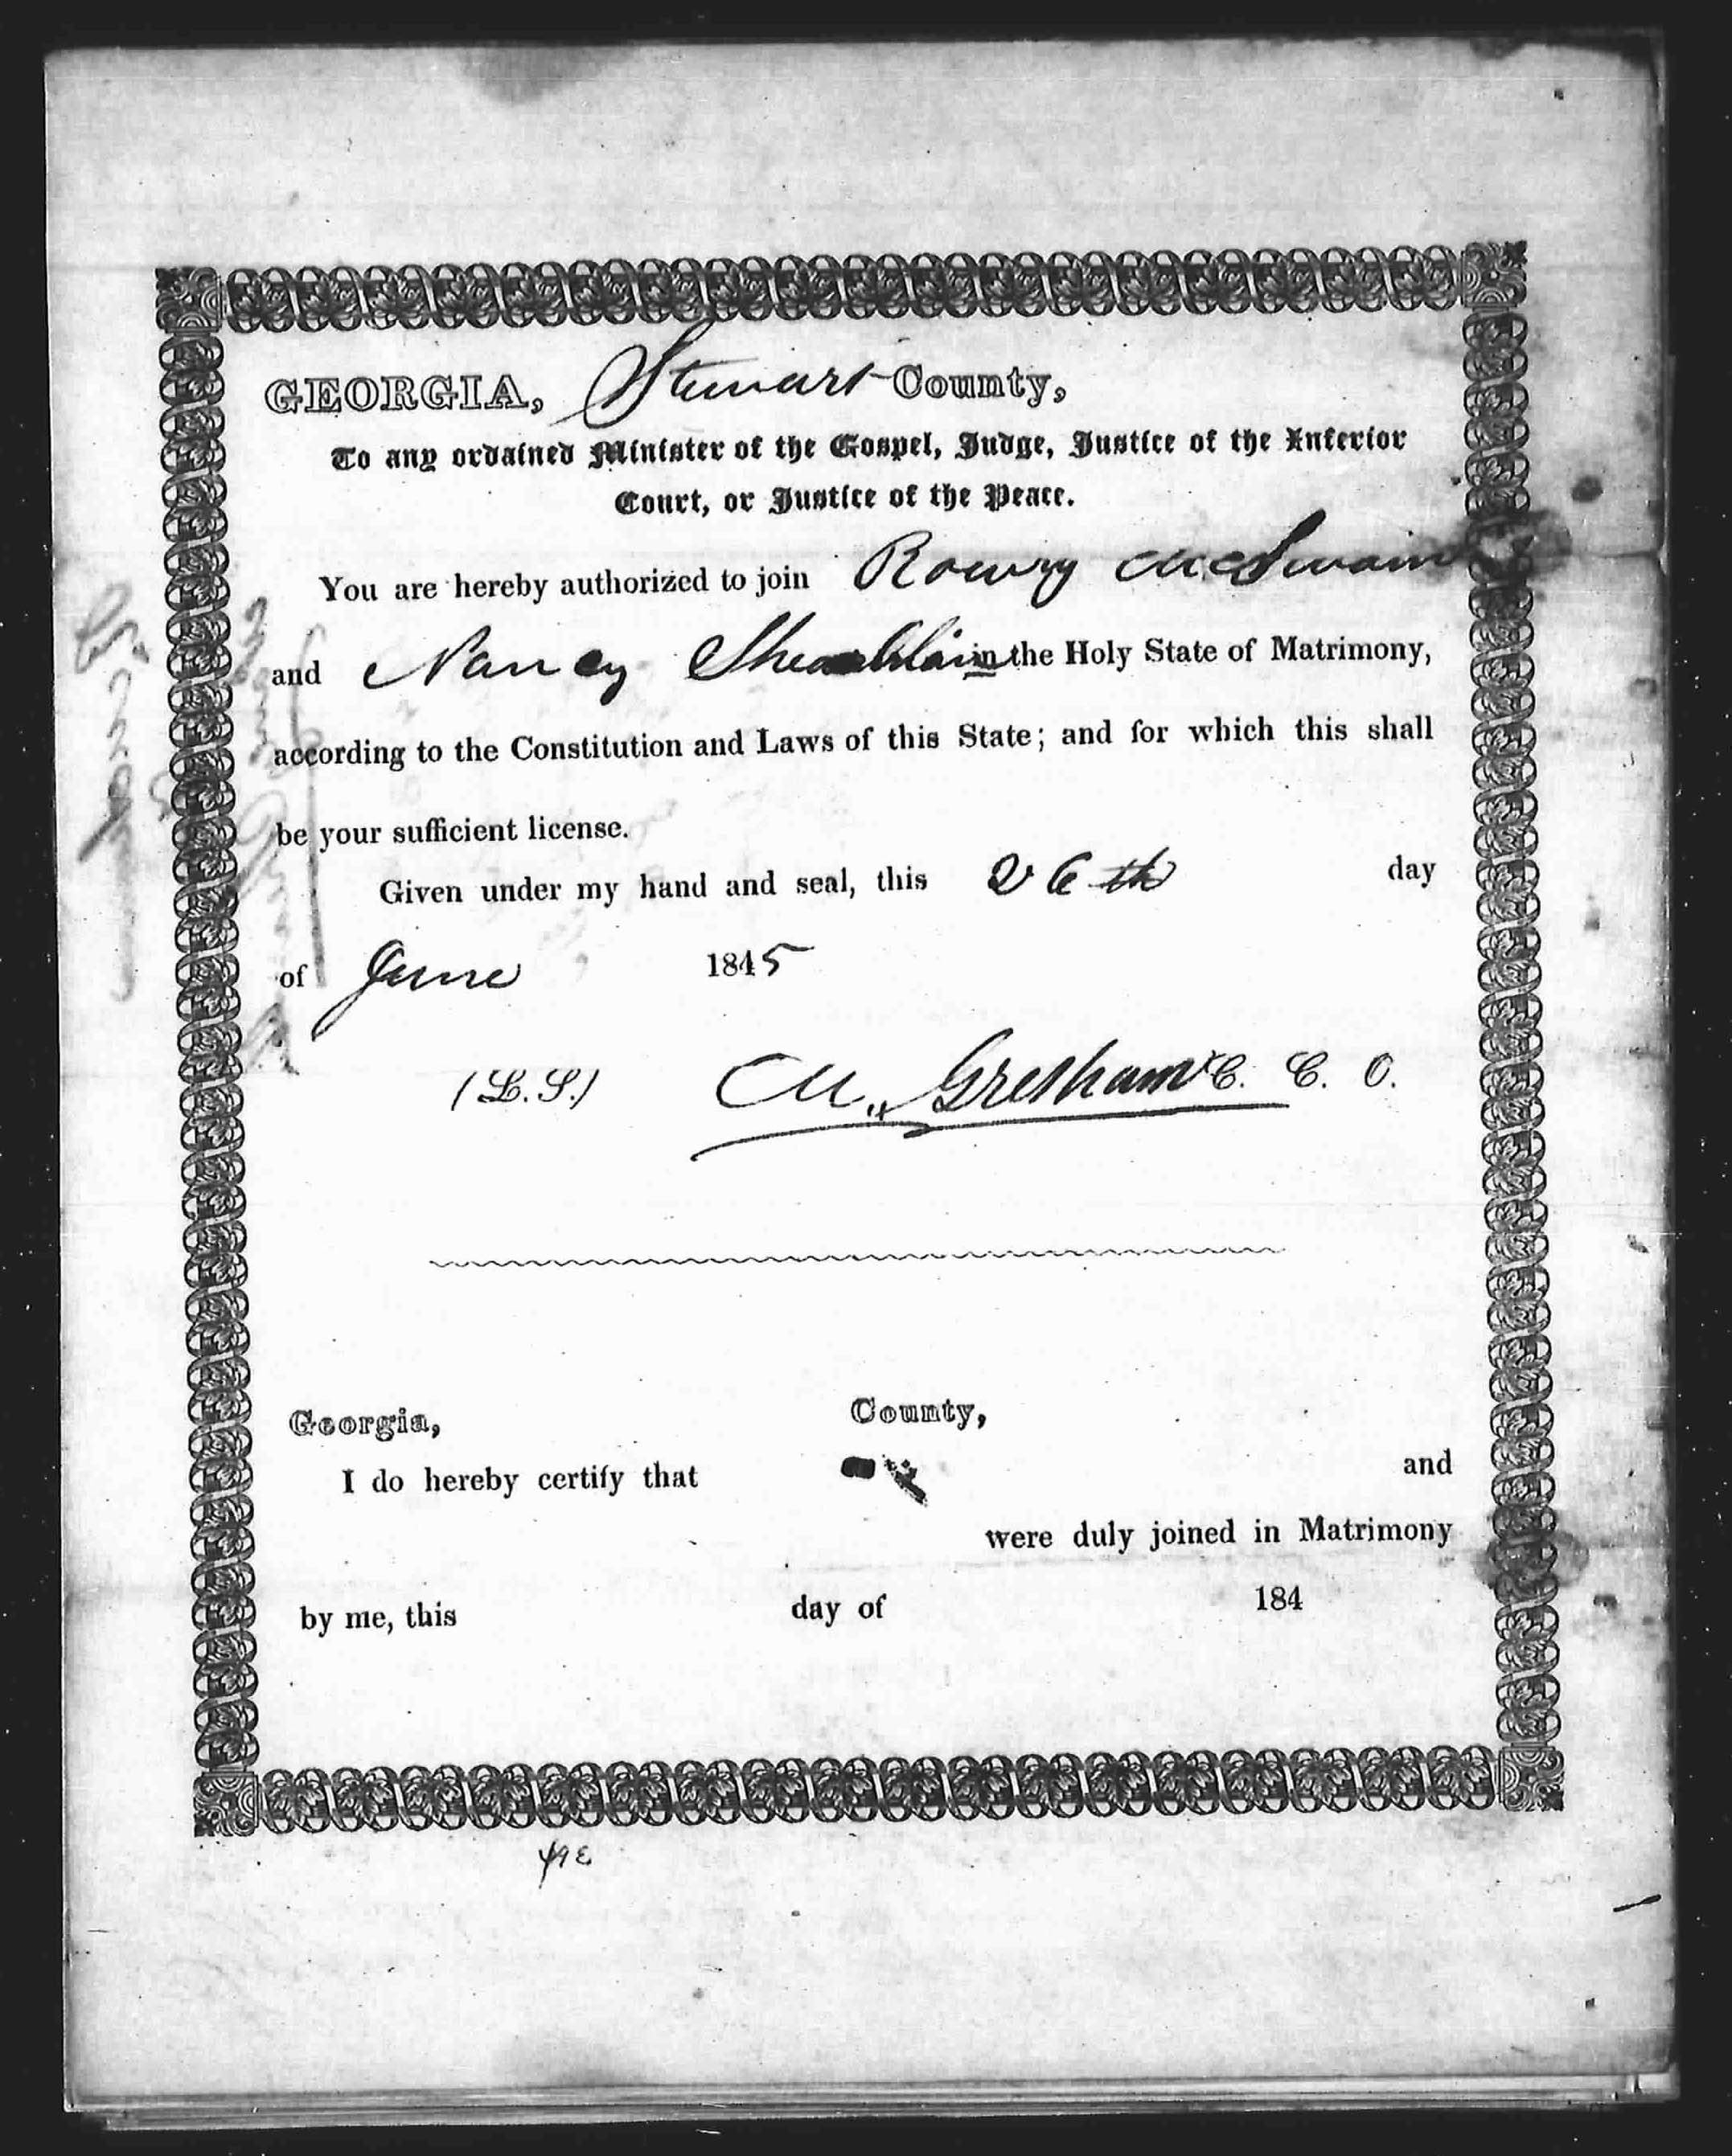 GEORGIA, Stewart County,
To any ordained Minister of the Gospel, Judge, Justice of the Inferior
Court, or Justice of the Peace.
You are hereby authorized to join McSwain
and Nancy in the Holy State of Matrimony,
according to the Constitution and Laws of this State; and for which this shall
be your sufficient license.
Given under my hand and seal, this 26th day
of June 1845
(L.S.) M. Gresham C. C. O.
Georgia, County,
I do hereby certify that and
were duly joined in Matrimony
by me, this day of 184